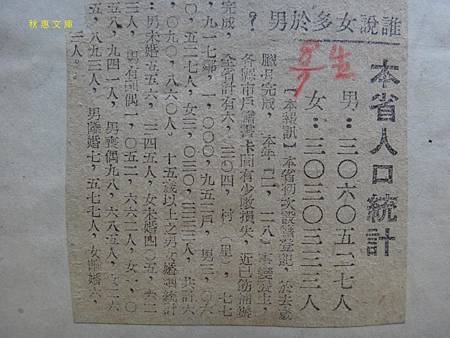 秋惠文庫
誰說女多於男？
本省人口統計
男：三〇六〇五二七人
女：三〇三〇三三三人
【本報訊】本省初次設籍登記，於去歲
臘月完成，本年「二，二八」事變發生，
各縣市戶籍書卡間有少數損失，近已飭補辦
完成，全省計有六，三〇四，村（里），七七
，九一七鄰，一，〇〇〇，九五二戶，男三，〇六
〇，五二七人，女三，〇三〇，三三三人，共計六
，〇九〇，八六〇人。十五歲以上之男女婚姻統計
：男未婚五五六，二四五人，女未婚四〇五，六二
三人，男有配偶一，〇五二，六六二人，女一，〇
五八，九四一人，男喪偶九八，六八五人，女二六
五，八九三人，男離婚七，五七七人，女離婚六，
二人。